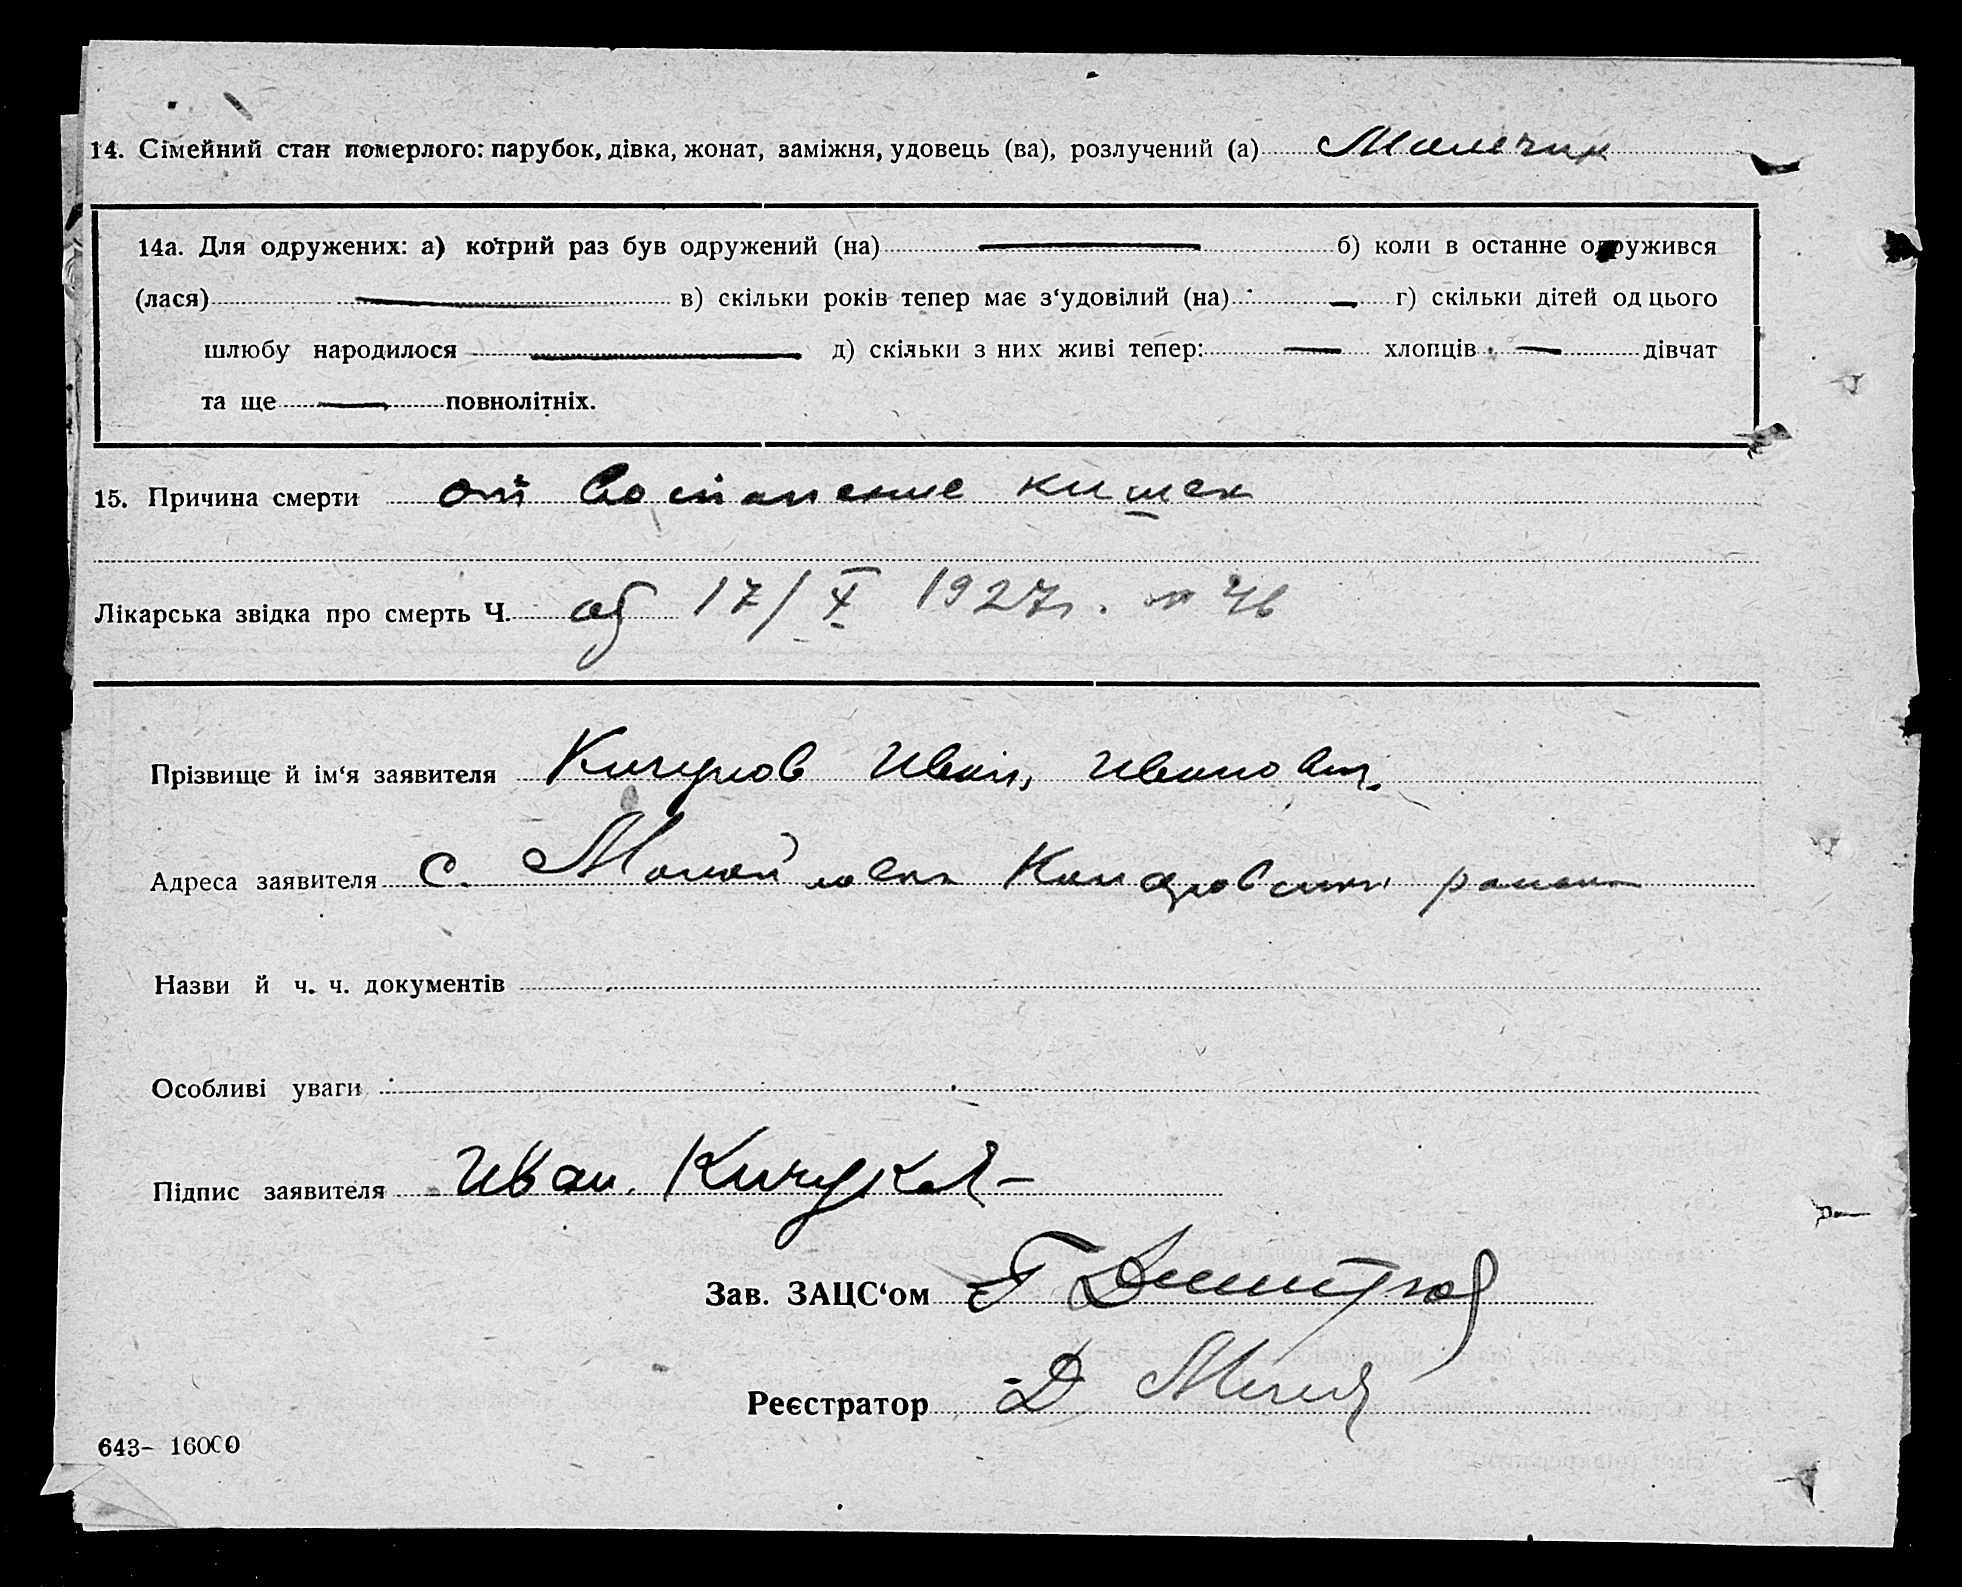 14. Сімейний стан померлого: парубок, дівка, жонат, заміжня, удовець (ва), розлучений (а) Мальчик
14а. Для одружених: а) котрий раз був одружений (на) — б) коли в останнє одружився
(лася) — в) скільки років тепер має з‘удовілий (на) — г) скільки дітей од цього
шлюбу народилося — д) скільки з них живі тепер: — хлопців — дівчат
та ще — повнолітніх.
15. Причина смерти от Воспаление кишек
Лікарська звідка про смерть Ч. 17/X 1927г.
Прізвище й ім‘я заявителя Кичуков Иван Иванович
Адреса заявителя с.
Назви й ч. ч. документів
Особливі уваги
Підпис заявителя Иван Кичуков
Зав. ЗАЦС‘ом Г Димитров
Реєстратор Д
643– 16000